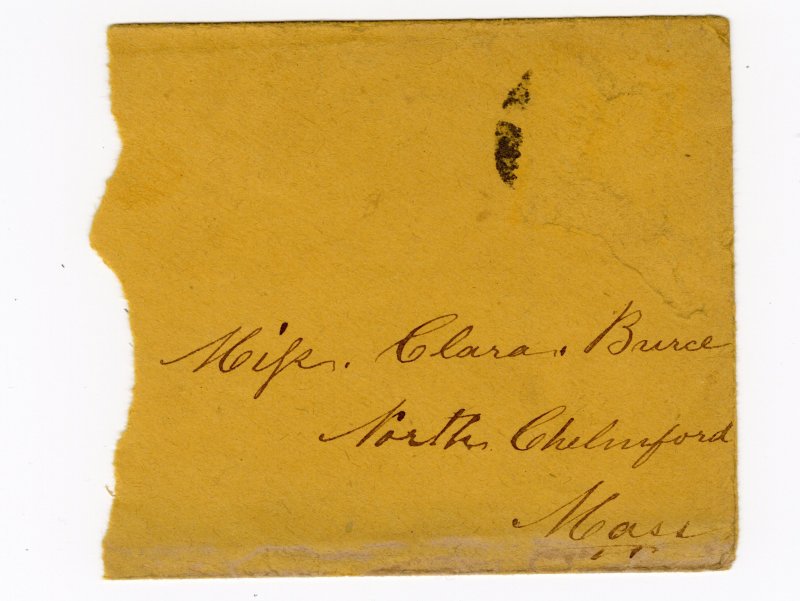 Miss. Clara. Burce
North Chelmsford
Mass